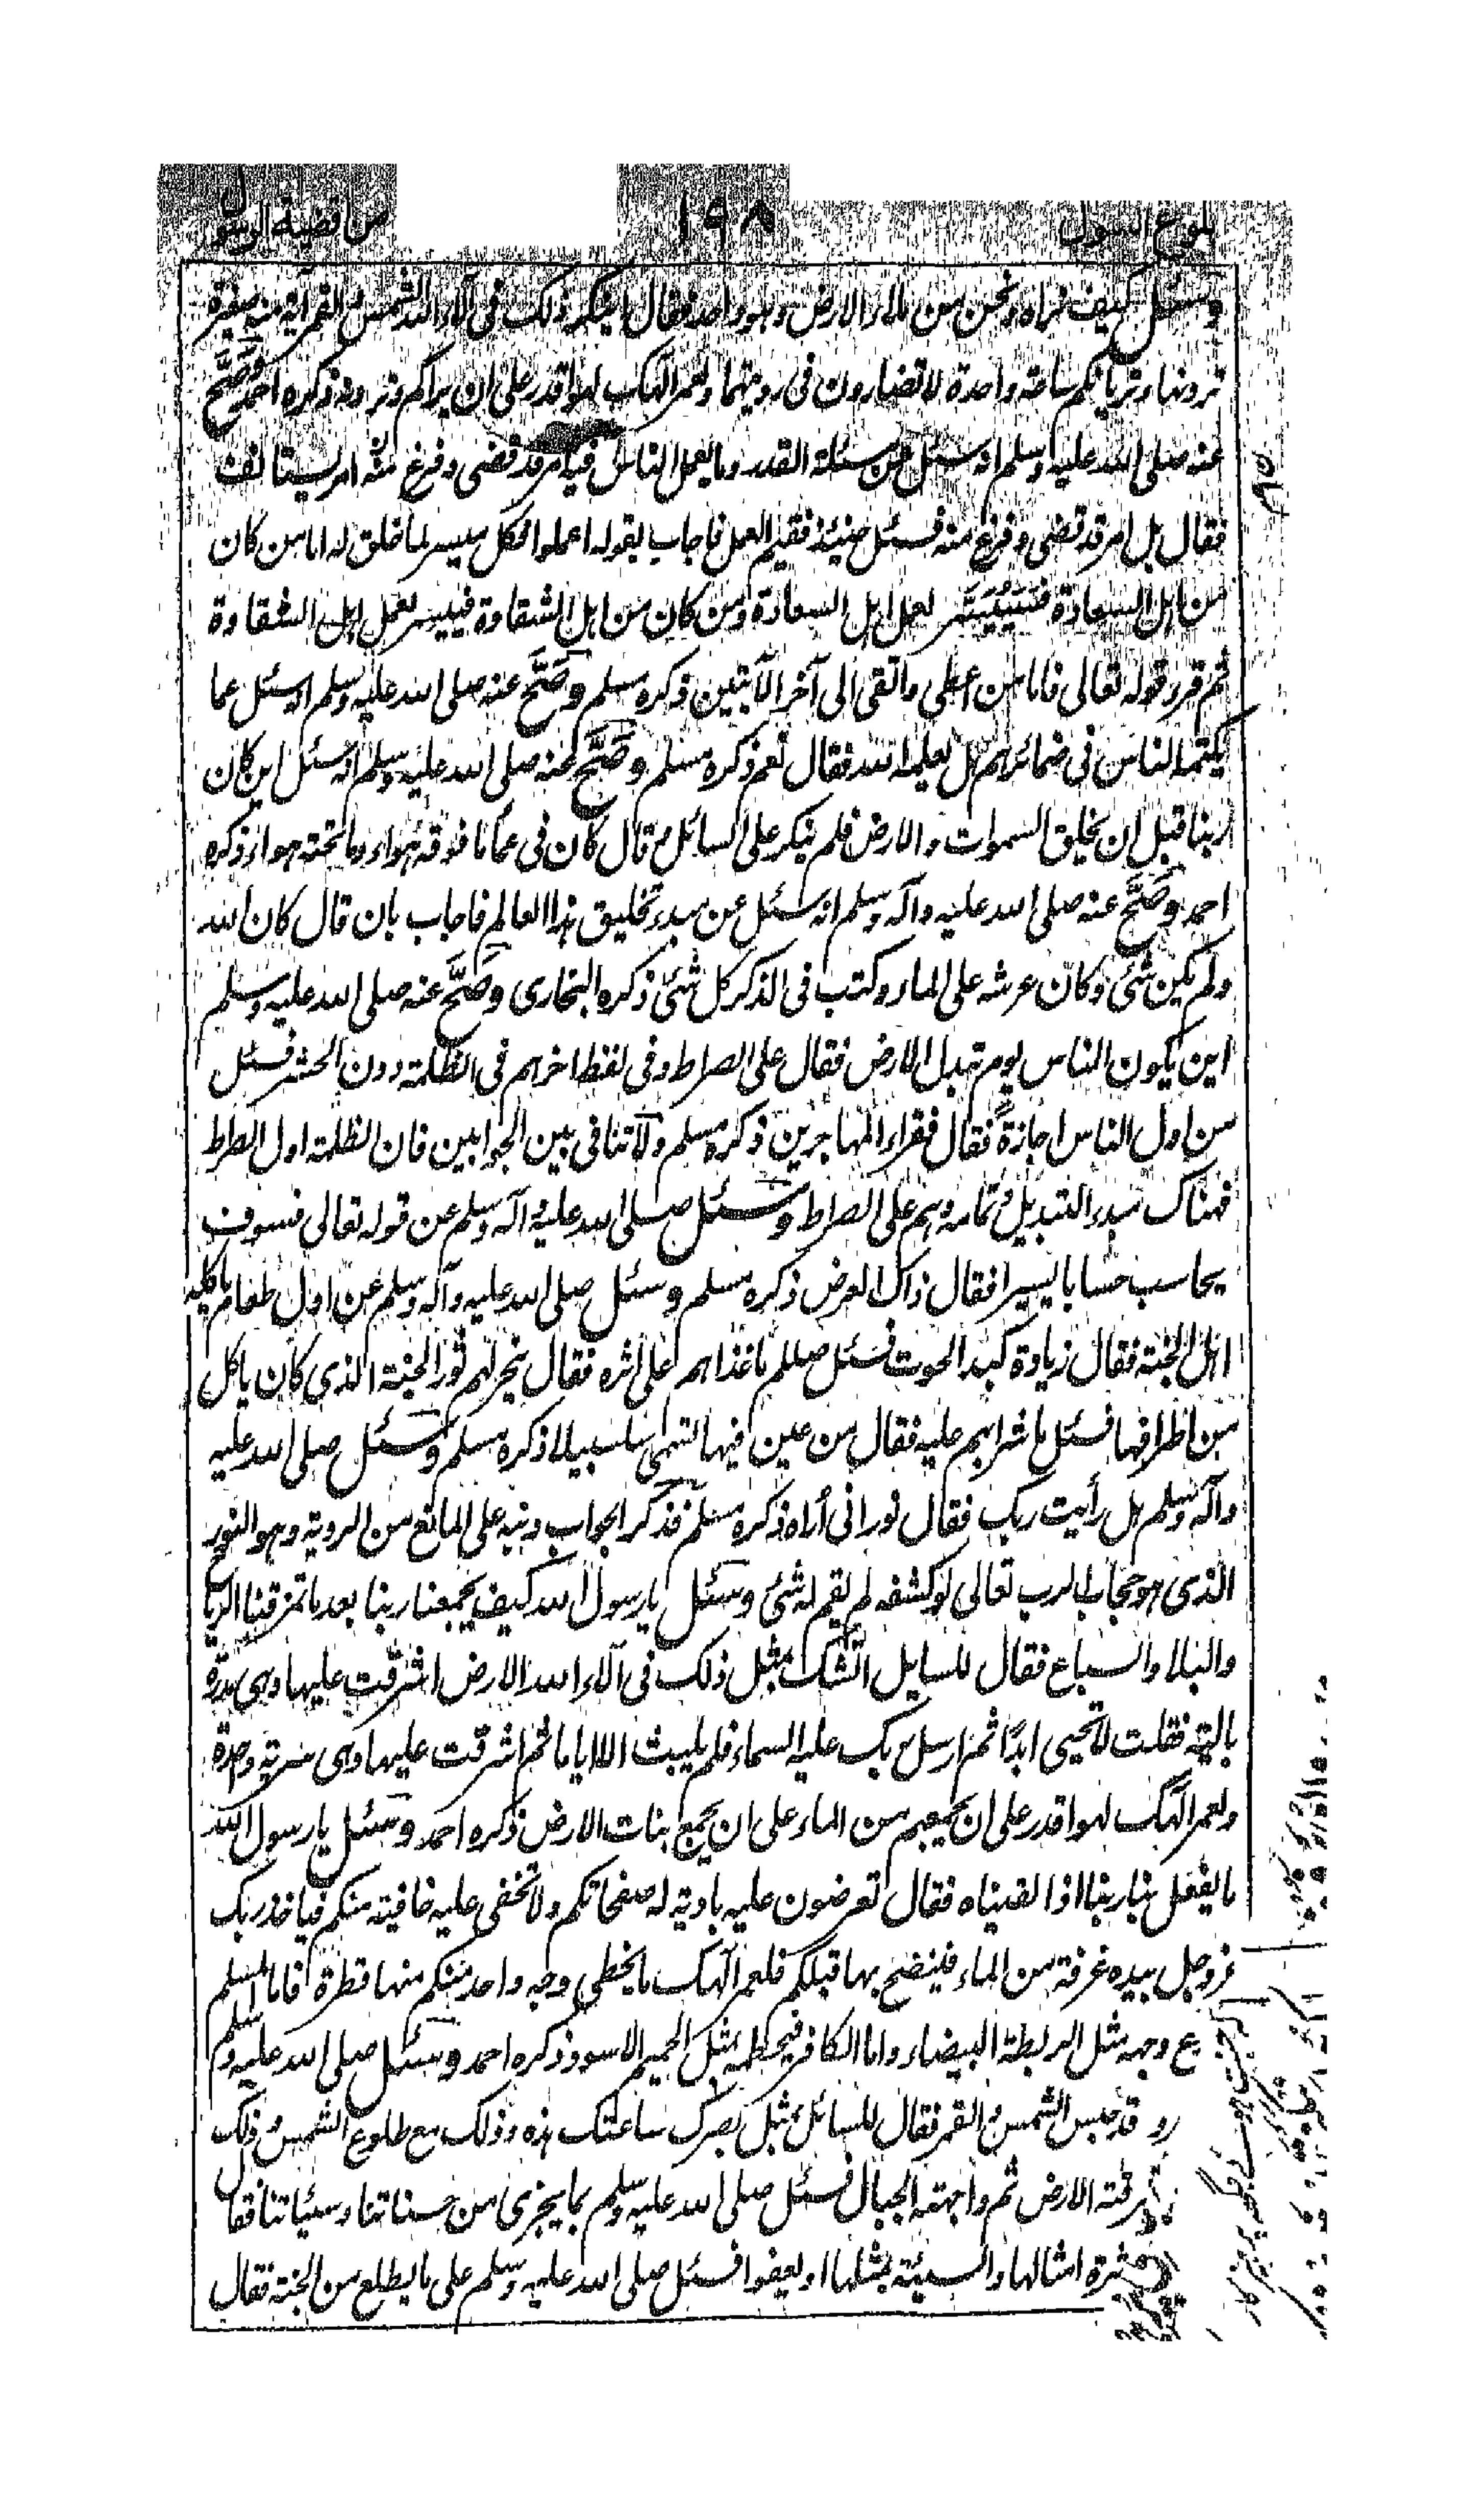 بلوغ السول ١٩٨ من اقضية الرسول
وسئل كيف نراه ونحن من ملاء الارض وهو واحد فقال انبئكم ذلك فى آلاء الله الشمس والقمر آية منه صغيرة
ترونها وتريانكم ساعة واحدة لا تضارون فى رويتهما ولعمر الهك لهو اقدر على ان يراكم وترونه ذكره احمد وصَحَّ
عنه صلى الله عليه وسلم انه سئل عن مسئلة القدر وما يعمل الناس فيه امر قد قضى وفرغ منه امر يستانف
فقال بل امر قد قضى وفرغ منه فسئل حينئذ ففيم العمل فاجاب بقوله اعملوا فكل ميسر لما خلق له اما من كان
من اهل السعادة فَسَيُيَسَّر لعمل اهل السعادة ومن كان من اهل الشقاوة فييسر لعمل اهل الشقاوة
ثم قرء قوله تعالى فاما من اعطى واتقى الى آخر الآيتين ذكره مسلم وصَحَّ عنه صلى الله عليه وسلم انه سئل عما
يكتمه الناس فى ضمائرهم هل يعلمه الله فقال نعم ذكره مسلم وصَحَّ عنه صلى الله عليه وسلم انه سئل اين كان
ربنا قبل ان يخلق السموات والارض فلم ينكر على السائل وقال كان فى عماء ما فوقه هواء وما تحته هواء ذكره
احمد وصَحَّ عنه صلى الله عليه وآله وسلم انه سئل عن مبدء تخليق هذا العالم فاجاب بان قال كان الله
ولم يكن شئ وكان عرشه على الماء وكتب فى الذكر كل شئ ذكره البخارى وصَحَّ عنه صلى الله عليه وسلم
اين يكون الناس يوم تبدل الارض فقال على الصراط وفى لفظ اخر هم فى الظلمة دون الحشر فسئل
من اول الناس اجازةً فقال فقراء المهاجرين ذكره مسلم ولا تنافى بين الجوابين فان الظلمة اول الصراط
فهناك مبدء التبديل وتمامه وهم على الصراط وسئل صلى الله عليه وآله وسلم عن قوله تعالى فسوف
يحاسب حسابا يسيرا فقال ذاك العرض ذكره مسلم وسئل صلى الله عليه وآله وسلم عن اول طعام ياكله
اهل الجنة فقال زيادة كبد الحوت فسئل صلعم ما غذاهم على اثره فقال ينحر لهم ثور الجنة الذى كان ياكل
من اطرافها فسئل ما شرابهم عليه فقال من عين فيها تسمى سلسبيلا ذكره مسلم وسئل صلى الله عليه
وآله وسلم هل رأيت ربك فقال نور انى أراه ذكره مسلم فذكر الجواب ونبه على المانع من الروية وهو النور
الذى هو حجاب الرب تعالى لو كشفه لم يقم له شئ وسئل يا رسول الله كيف يجمعنا ربنا بعد ما تمزقنا الرياح
والبلا والسباع فقال للسايل انبئك بمثل ذلك فى آلاء الله الارض اشرقت عليها وهى مدرة
بالية فقلت لا تحيى ابدًا ثم ارسل ربك عليه السماء فلم يلبث الا اياما ثم اشرقت عليها وهى شربة واحدة
ولعمر الهك لهو اقدر على ان يجمعهم من الماء على ان يجمع نبات الارض ذكره احمد وسئل يا رسول الله
ما يفعل بنا ربنا اذا لقيناه فقال تعرضون عليه بادية له صفحاتكم ولا تخفى عليه خافية منكم فياخذ ربك
عز وجل بيده غرفة من الماء فينضح بها قبلكم فلعمر الهك ما يخطى وجه واحد منكم منها قطرة فاما المسلم
ع وجهه مثل الريطة البيضاء واما الكافر فيخطمه بمثل الحميم الاسود ذكره احمد وسئل صلى الله عليه وسلم
قد حبس الشمس والقمر فقال للسائل بمثل بصرك ساعتك هذه وذلك مع طلوع الشمس وذلك
رقته الارض ثم واجهته الجبال فسئل صلى الله عليه وسلم بما يجزى من حسناتنا وسيئاتنا فقال
امثالها والسيئة بمثلها او يعفوا فسئل صلى الله عليه وسلم على ما يطلع من الجنة فقال